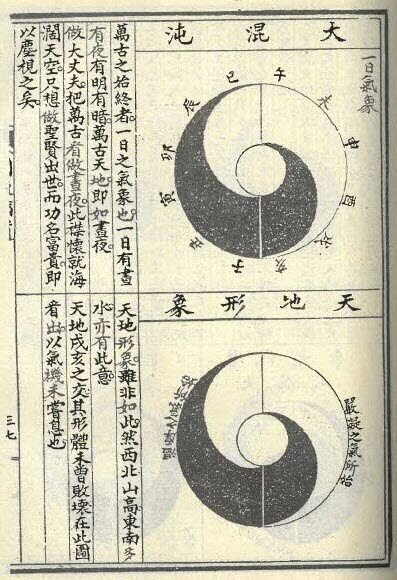 一日氣象
大混沌
午
未
申
酉
戌
亥
子
丑
寅
卯
辰
巳
萬古之始終者。一日之氣象也。一日有晝
有夜有明有暗。萬古天地即如晝夜。
做大丈夫。把萬古看做晝夜。此襟懷就海
濶天空。只想做聖賢出世。而功名富貴。即
以塵視之矣。
天地形象
嚴凝之氣所始
溫厚之氣所始
天地形象。雖非如此。然西北山高。東南多
水。亦有此意。
天地戌亥之交。其形體未曾敗壞。在此圖
看出。以氣機未嘗息也
三七